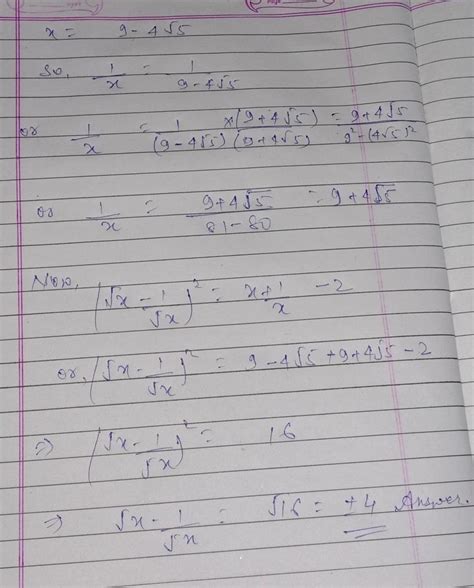 x = 9 - 4√5
So, 1/x = 1/(9 - 4√5)
or 1/x = 1 × (9 + 4√5)/((9 - 4√5)(9 + 4√5)) = (9 + 4√5)/(9² - (4√5)²)
or 1/x = (9 + 4√5)/(81 - 80) = 9 + 4√5
Now, (√x - 1/√x)² = x + 1/x - 2
or, (√x - 1/√x)² = 9 - 4√5 + 9 + 4√5 - 2
⇒ (√x - 1/√x)² = 16
⇒ √x - 1/√x = √16 = ±4 Answer.